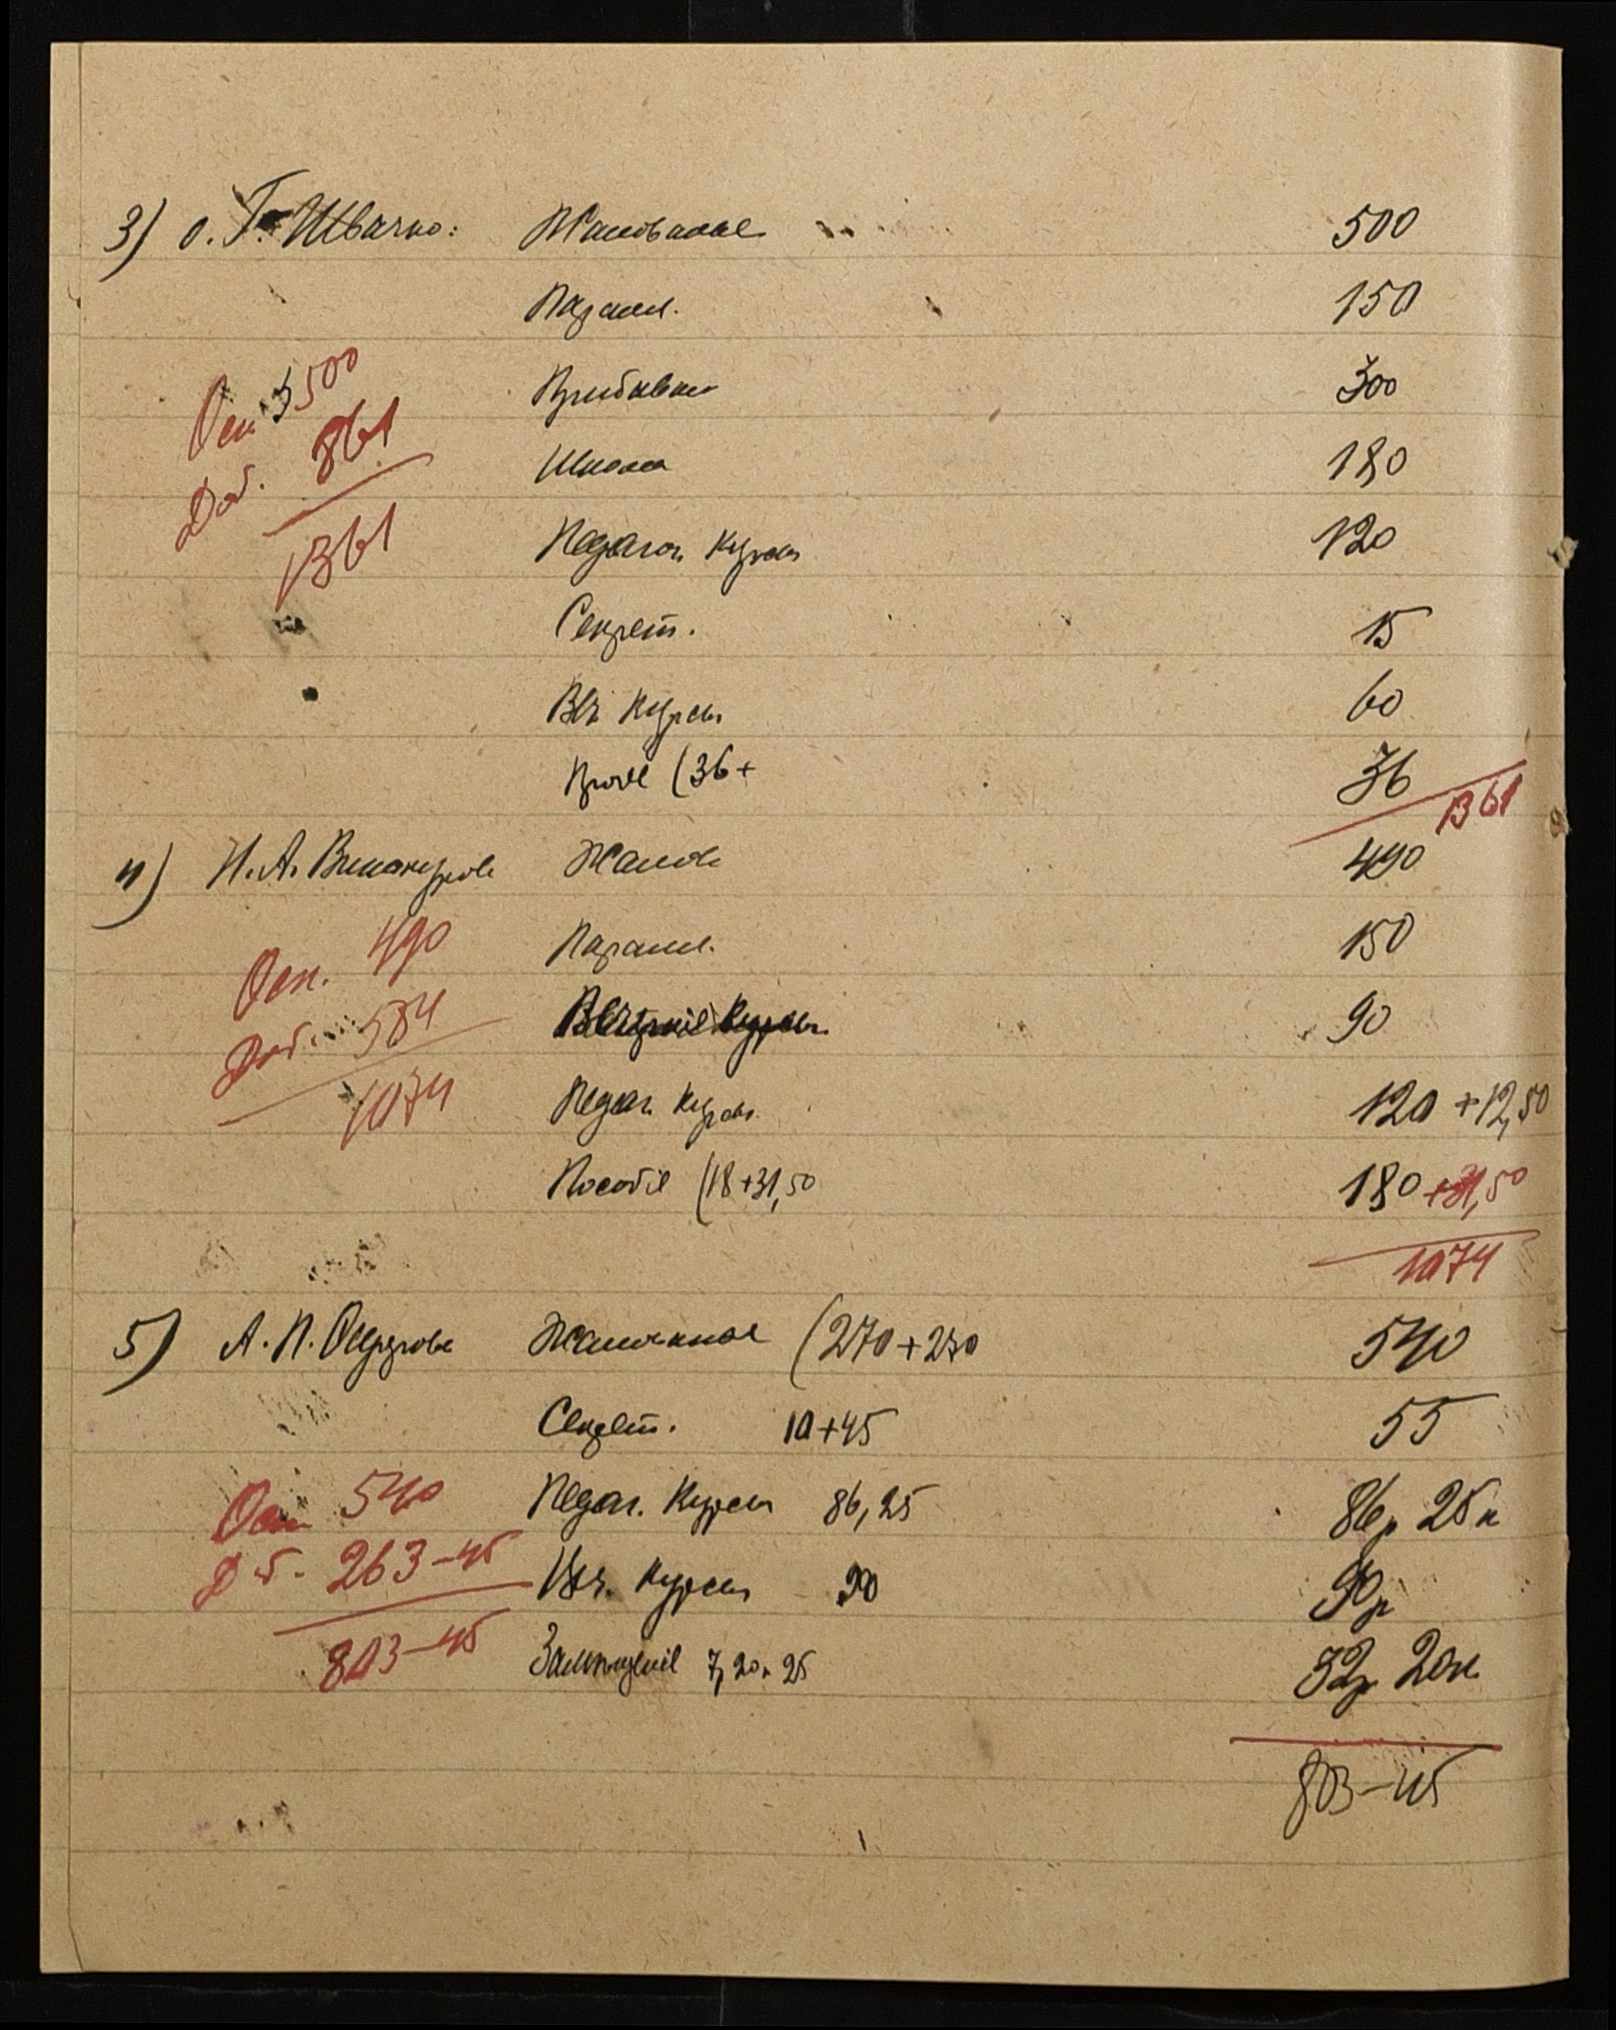 3) о. Г. Швачко: Жалованье 500
Паралл. 150
Прибавки 300
Осн 500
Школа 180
Доб. 861
Педагог. Курсы 120
1361
Секрет. 15
Веч. Курсы 60
(36+ 36
1361
4) Н. А. Винокуров Жалов 490
Осн. 490
Паралл. 150
Доб. 584
Вечерніе Курсы 90
1074
Педаг. Курсы 120 + 12,50
Пособіе (18+31,50 180+31,50
1074
5) А. П. Жалованье (270+270 540
Секрет. 10+45 55
Осн 540
Педаг. Курсы 86,25 86р 25к
Доб. 263-45
Веч. Курсы 90 90р
803-45
7,20 25 32р 20к
803-45